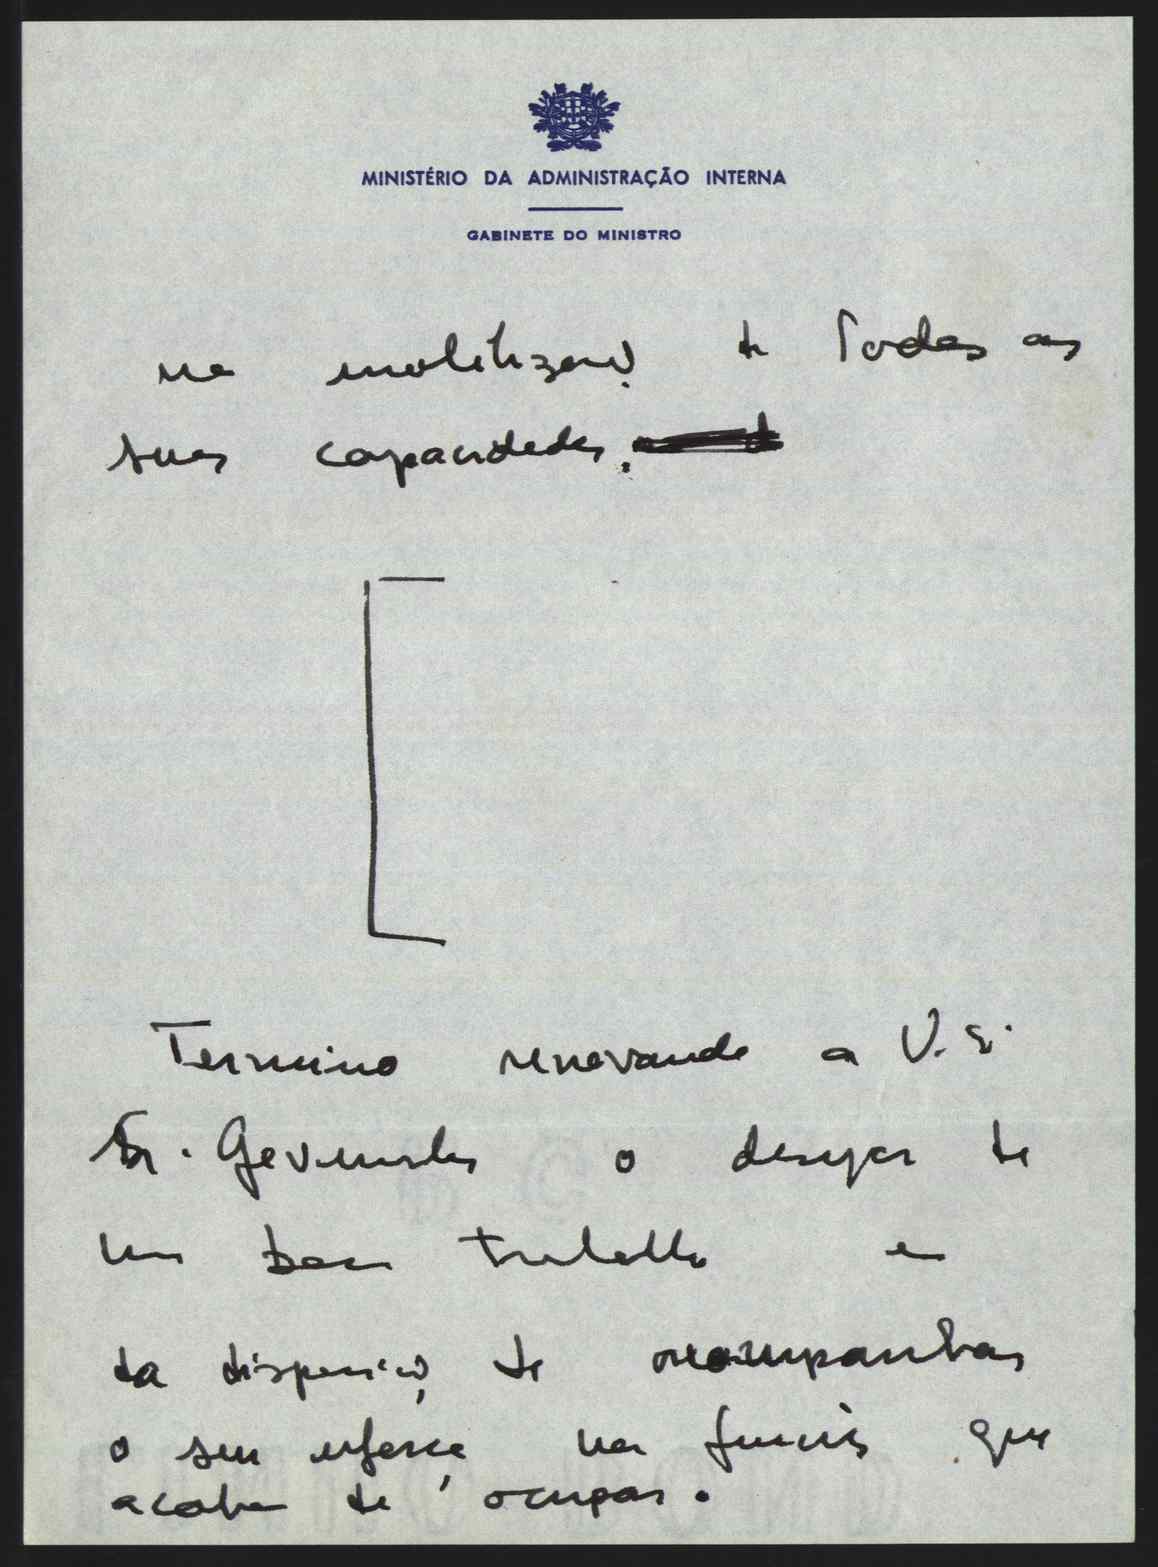 MINISTÉRIO DA ADMINISTRAÇÃO INTERNA
GABINETE DO MINISTRO
na mobilização de Todas as
suas capacidades.
Termino renovando a V. E.
Sr. Governador o desejo de
um bom trabalho e
da disposição de acompanhar
o seu esforço na função que
acaba de ocupar.